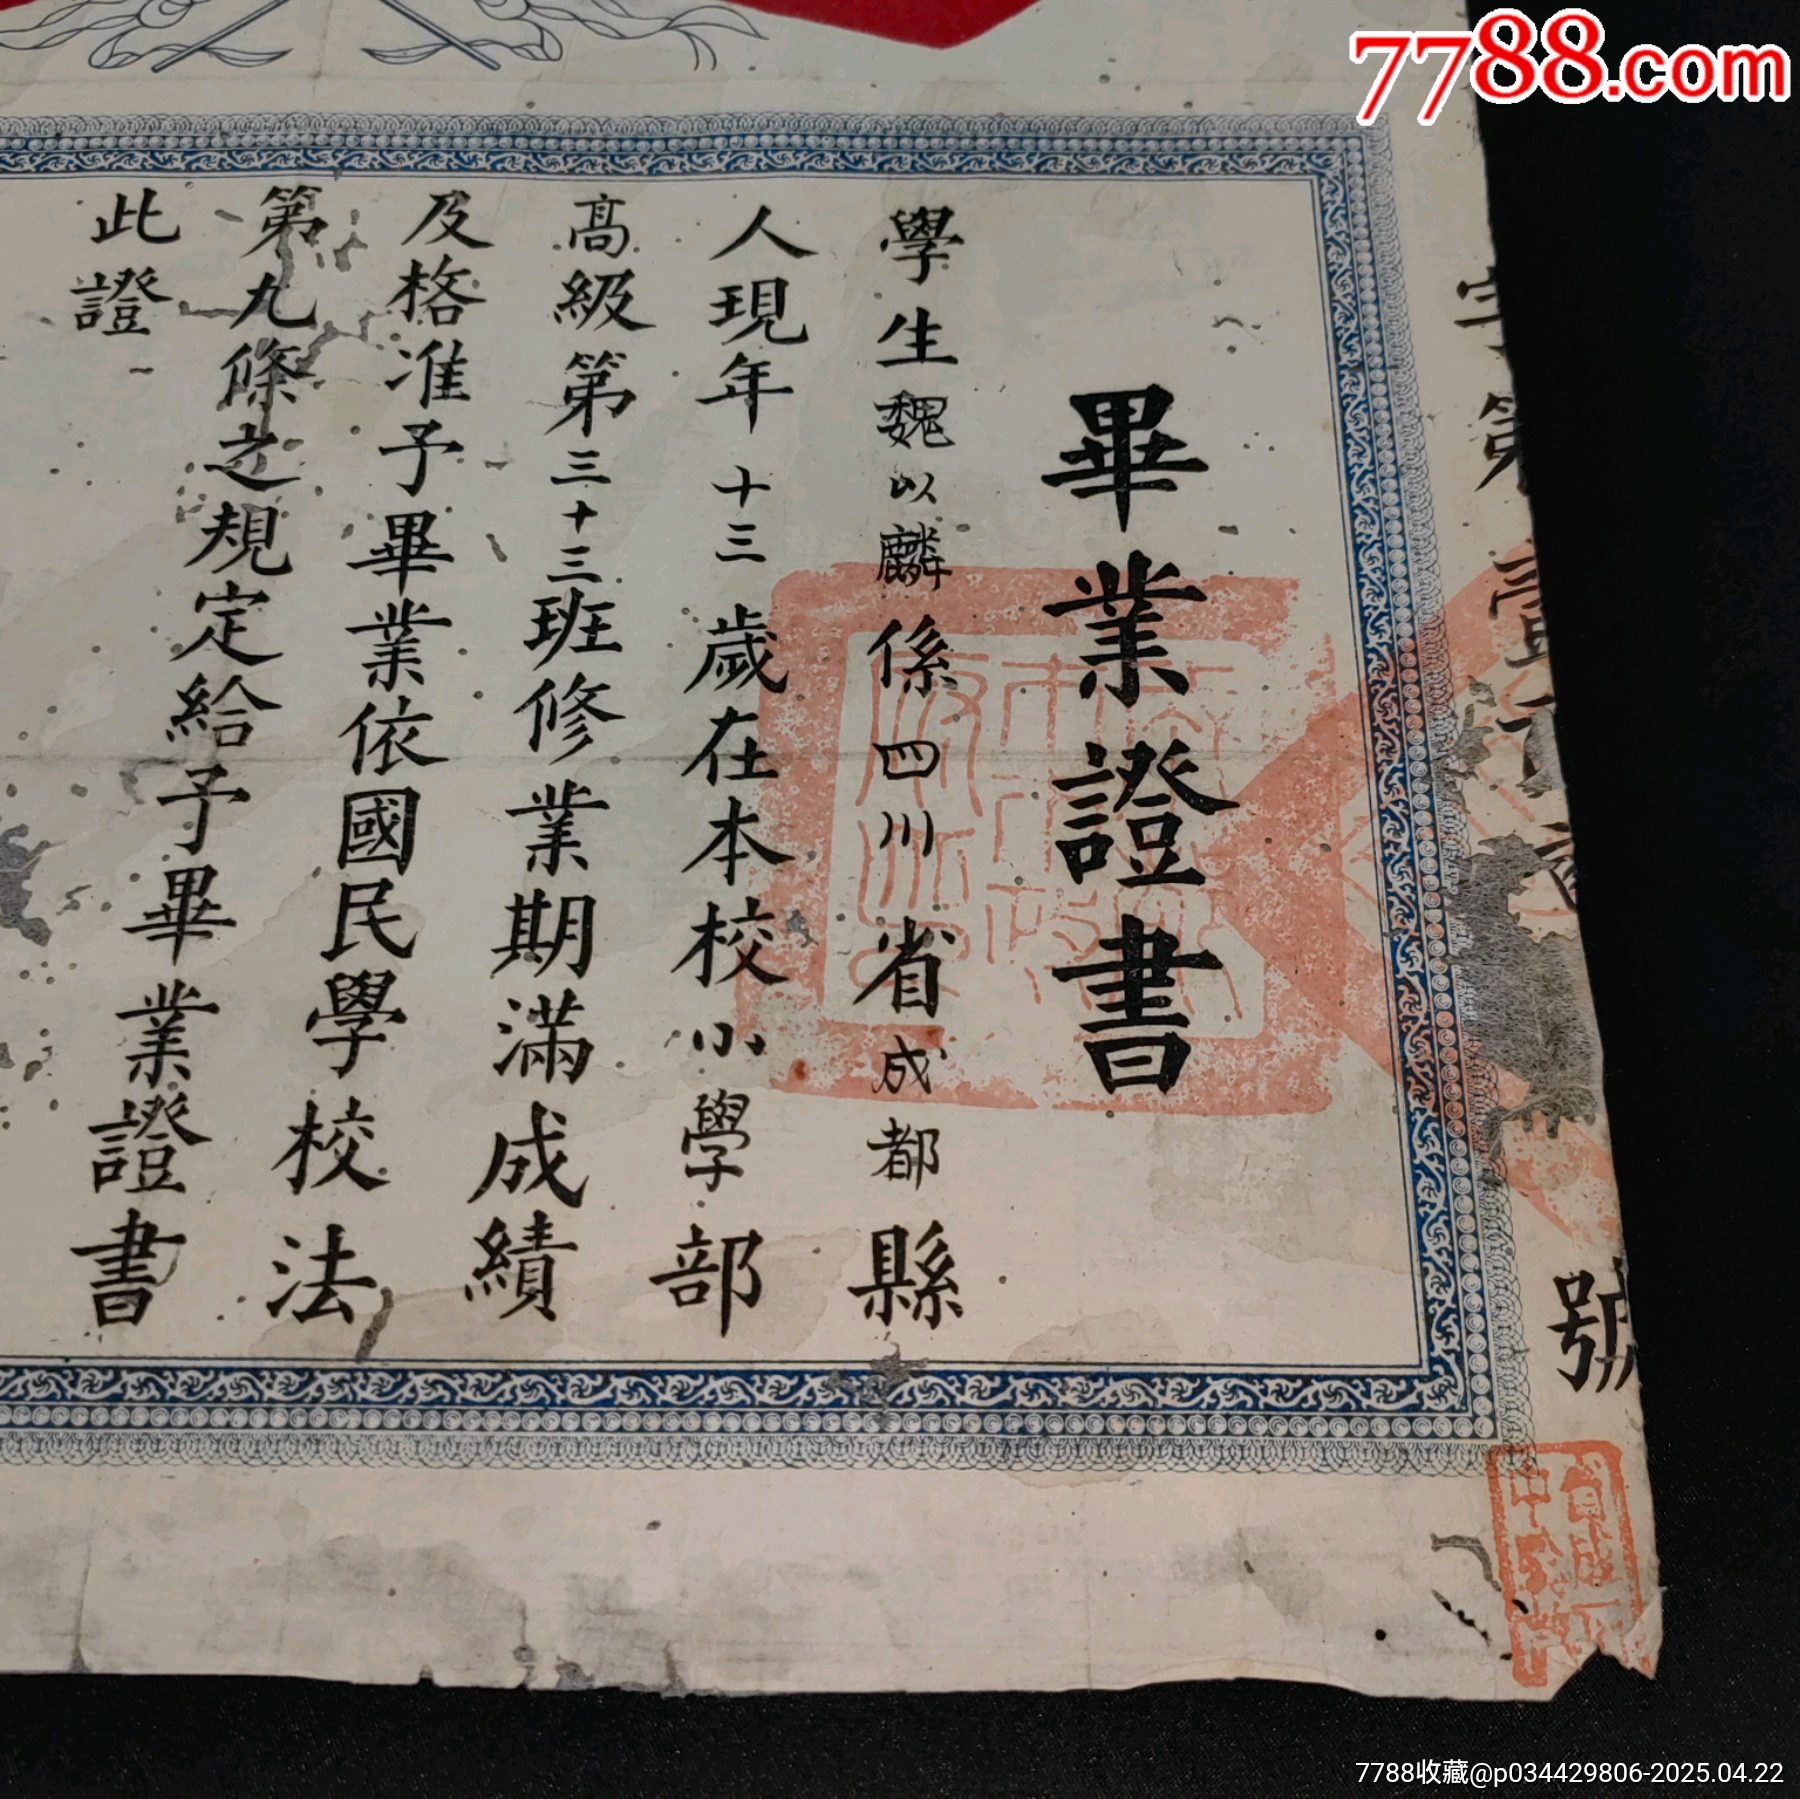 7788.com
字第壹百 號
畢業證書
學生魏以麟係四川省成都縣
人現年十三歲在本校小學部
高級第三十三班修業期滿成績
及格准予畢業依國民學校法
第九條之規定給予畢業證書
此證
7788收藏@p034429806-2025.04.22